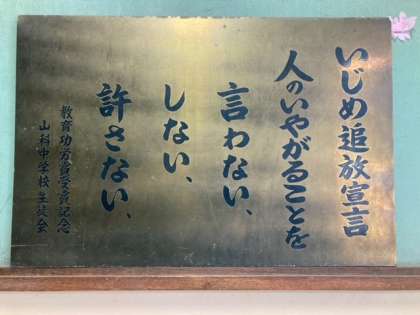 いじめ追放宣言
人のいやがることを
言わない、
しない、
許さない、
教育功労賞受賞記念
山科中学校生徒会